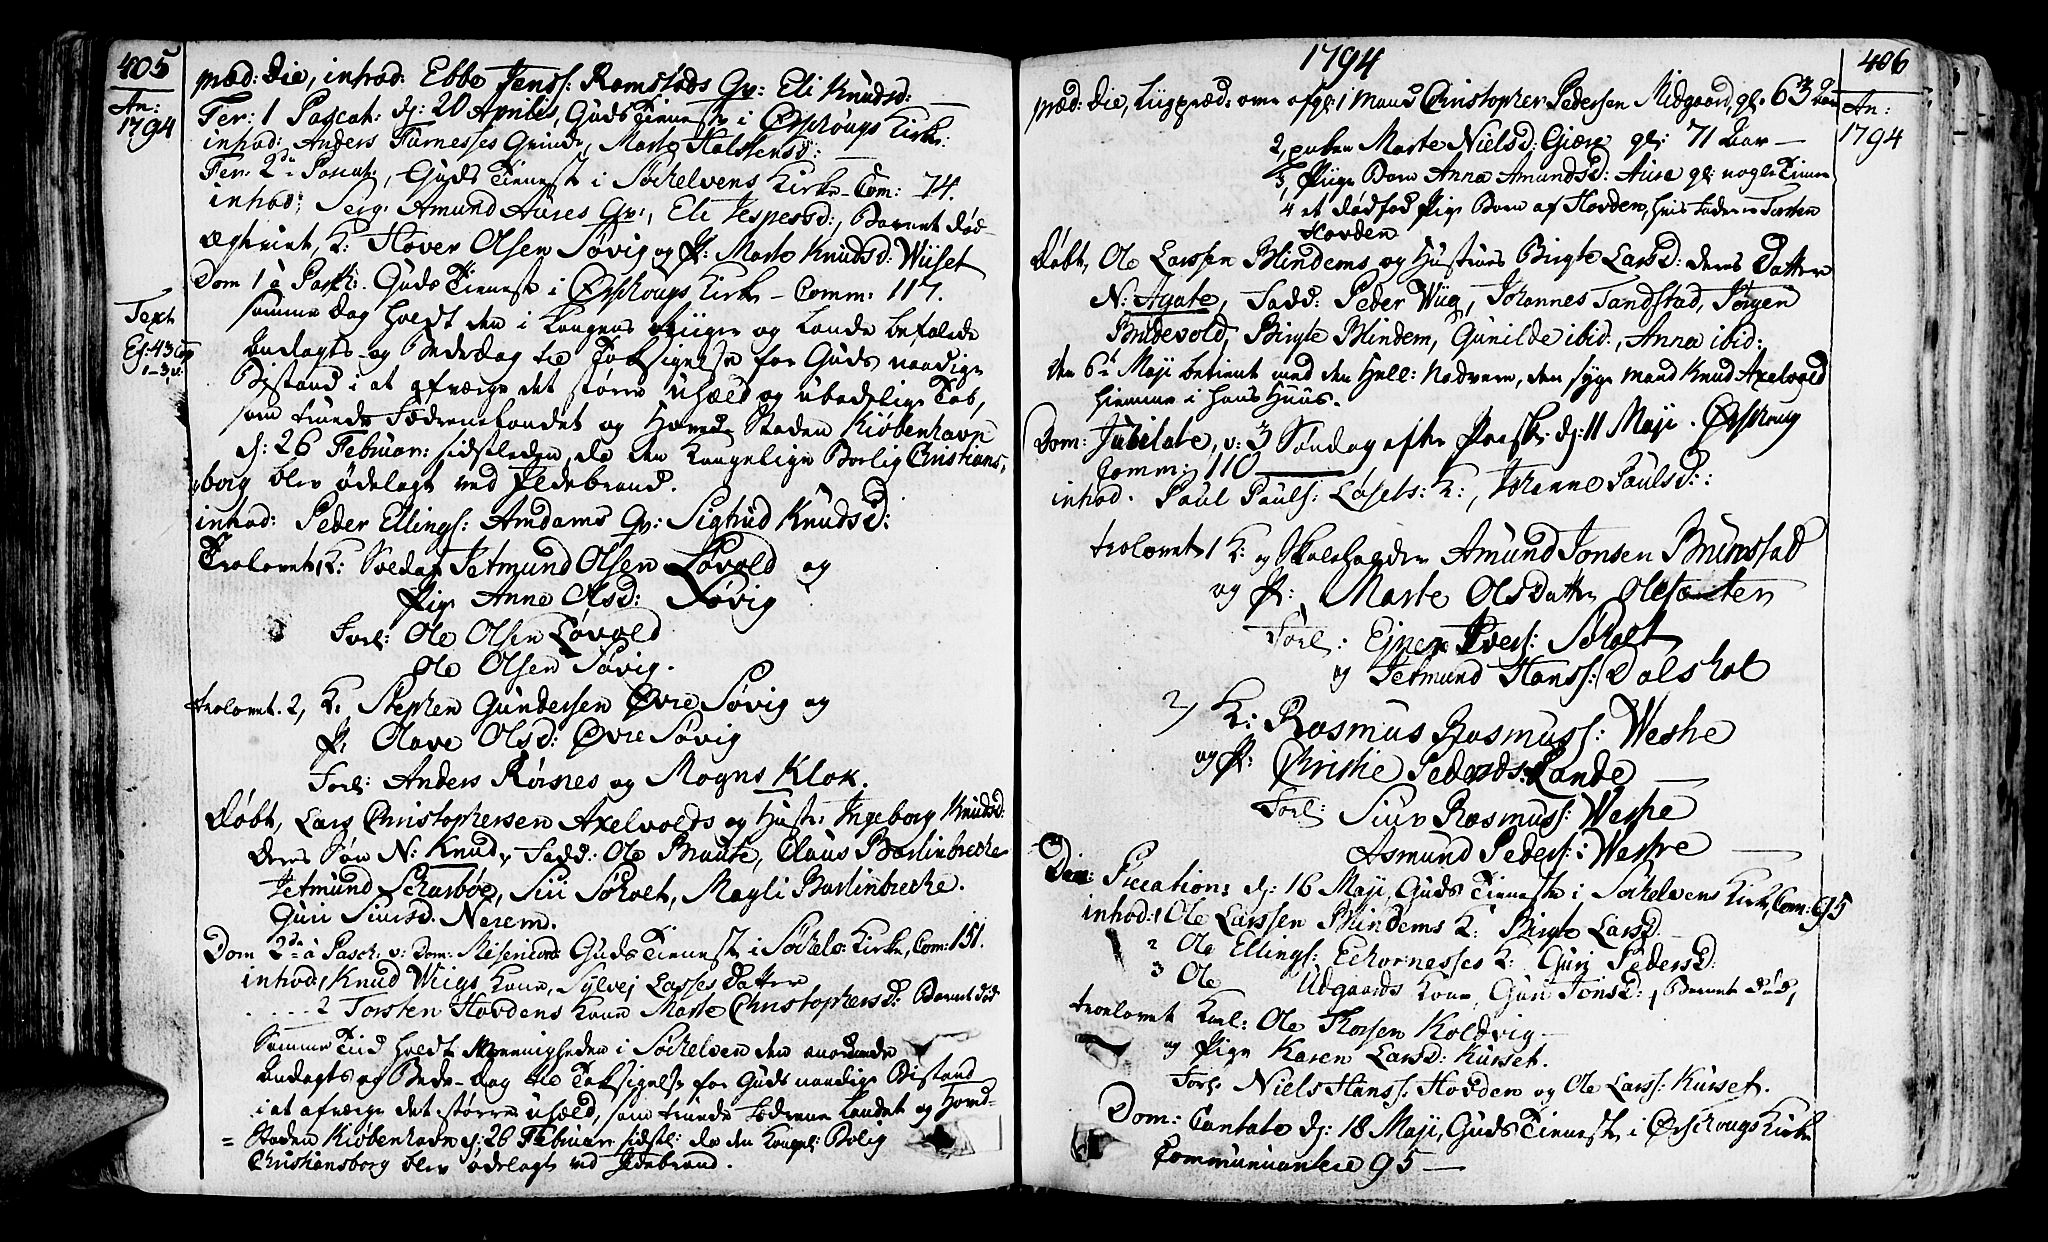 405
An:
1794
Eæd: Die, introd: Ebbe Jenss: Ramstads Qv: Eli Knudsd:
Fer: 1 Pascat: dj: 20 Aprilis, Guds Tieneste i Ørschougs Kirke:
introd: Anders Farnesses Qvinde, Marte Halstensd:
Fer: 2da Pascat:, Guds Tieneste i Søchelvens Kirke – Com: 74.
introd: Serg: Amund Aures Qv:, Eli Jespersd:, Barnet død –
Ægteviet, K: Hover Olsen Søvig og P: Marte Knudsd: Wiiset
Dom 1 à Pasch: Guds Tieneste i Ørschougs Kirke – Comm: 117.
Text
Es: 43 Cap
1–3 v.
samme Dag holdt den i Kongens Riiger og Lande befalede
Andagts- og Bededag til Taksigelse for Guds naadige
Bistand i at afværge det større Uheld og ubodelige Tab,
som truede Fædrenelandet og Hoved-Staden Kiøbenhavn
dj: 26 Februar: sidstleden, da den Kongelige Bolig Christians-
borg blev ødelagt ved Ildebrand.
introd: Peder Ellings: Amdams Qv: Sigtrud Knudsd:
Trolovet 1, K: Soldat Jetmund Olsen Løvold og
Pige Anne Olsd: Søvig
Forl: Ole Olsen Løvold
Ole Olsen Søvig.
trolovet. 2, K. Stephen Gundersen Øvre Søvig og
P. Olave Olsd: Øvre Søvig
Forl: Anders Røisnes og Mogns Klok.
Døbt, Lars Christophersen Axelvolds og Hustr: Ingeborg Knudsd:
deres Søn N: Knud, Fadd: Ole Braute, Claus Barlinbrecke
Jetmund Scharbøe, Siri Søholt, Magli Barlinbrecke.
Guri Siursd. Nerem.
Dom 2da à Pasch. v: Dom: Misericord: Guds Tieneste i Søchelv: Kirke, Com: 151.
introd: 1 Knud Wiigs Kone, Sylvej Lasses Datter
2 Torsten Hovdens Kone Marte Christophersd: Barnet død
Samme Tiid holdt Menningheden i Søchelven den anordnede
Andagts og Bede-Dag til Taksigelse for Guds naadige Bistand
i at afværge det større Uheld, som truede Fædrene Landet og Hoved-
= Staden Kiøbenhavn dj: 26 Februar sidstl: da den Kongel: Bolig
Christiansborg blev ødelagt ved Ildebrand.
1794
406
An:
1794
Eæd: Die, Liigpræd: over afg: 1 Mand Christopher Pedersen Midgaard, gl: 63 Aar
2, Marte Nielsd: Giære gl: 71 Aar –
3, Pige Barn Anna Amundsd: Aure gl: nogle Timer
4 et dødfød Pige Barn af Hovden, hvis Fader er Torsten
Hovden
Døbt, Ole Larssen Blindems og Hustrues Birgte Larsd: deres Datter
N: Agate, Fadd: Peder Wiig, Johannes Tandstad, Jørgen
Brudevold, Birgte Blindem, Gunilde ibid:, Anna ibid:
den 6te Maji betient med den Hell: Nadvere, den syge Mand Knud Axelvold
hiemme i hans Huus.
Dom: Jubilate, v: 3 Søndag efter Paaske dj: 11 Maji. Ørschoug
Comm: 110
introd. Paul Pauls: Løsets: K:, Johanne Paulsd::
trolovet 1 K: og Skoleholder Amund Jonsen Brunstad
og P: Marte Olsdatter
Forl: Ejner Ivers: Søholt
og Jetmund Hanss: Dalshol
2, K: Rasmus Rasmuss: Westre
og P: Christie Pedersd: Lande
Forl: Siur Rasmuss: Westre
Asmund Peders: Westre
Die: Precation: dj: 16 Maji, Guds Tieneste i Søchelvens Kirke, Com: 95
introd: 1 Ole Larssen Blindems K: Birgte Larsd
2 Ole Ellings: Echornesses K: Guri Pedersd:
3 Ole Udgaards Kone, Guri Jonsd:, Barnet død,
troelovet Karl: Ole Thorsen Koldvig –
og Pige Karen Larsd: Kurset.
Forl: Niels Hanss: Hovden og Ole Larss: Kurset.
Dom: Cantate dj: 18 Maji, Guds Tieneste i Ørschougs Kirke
Communicantere 95 –